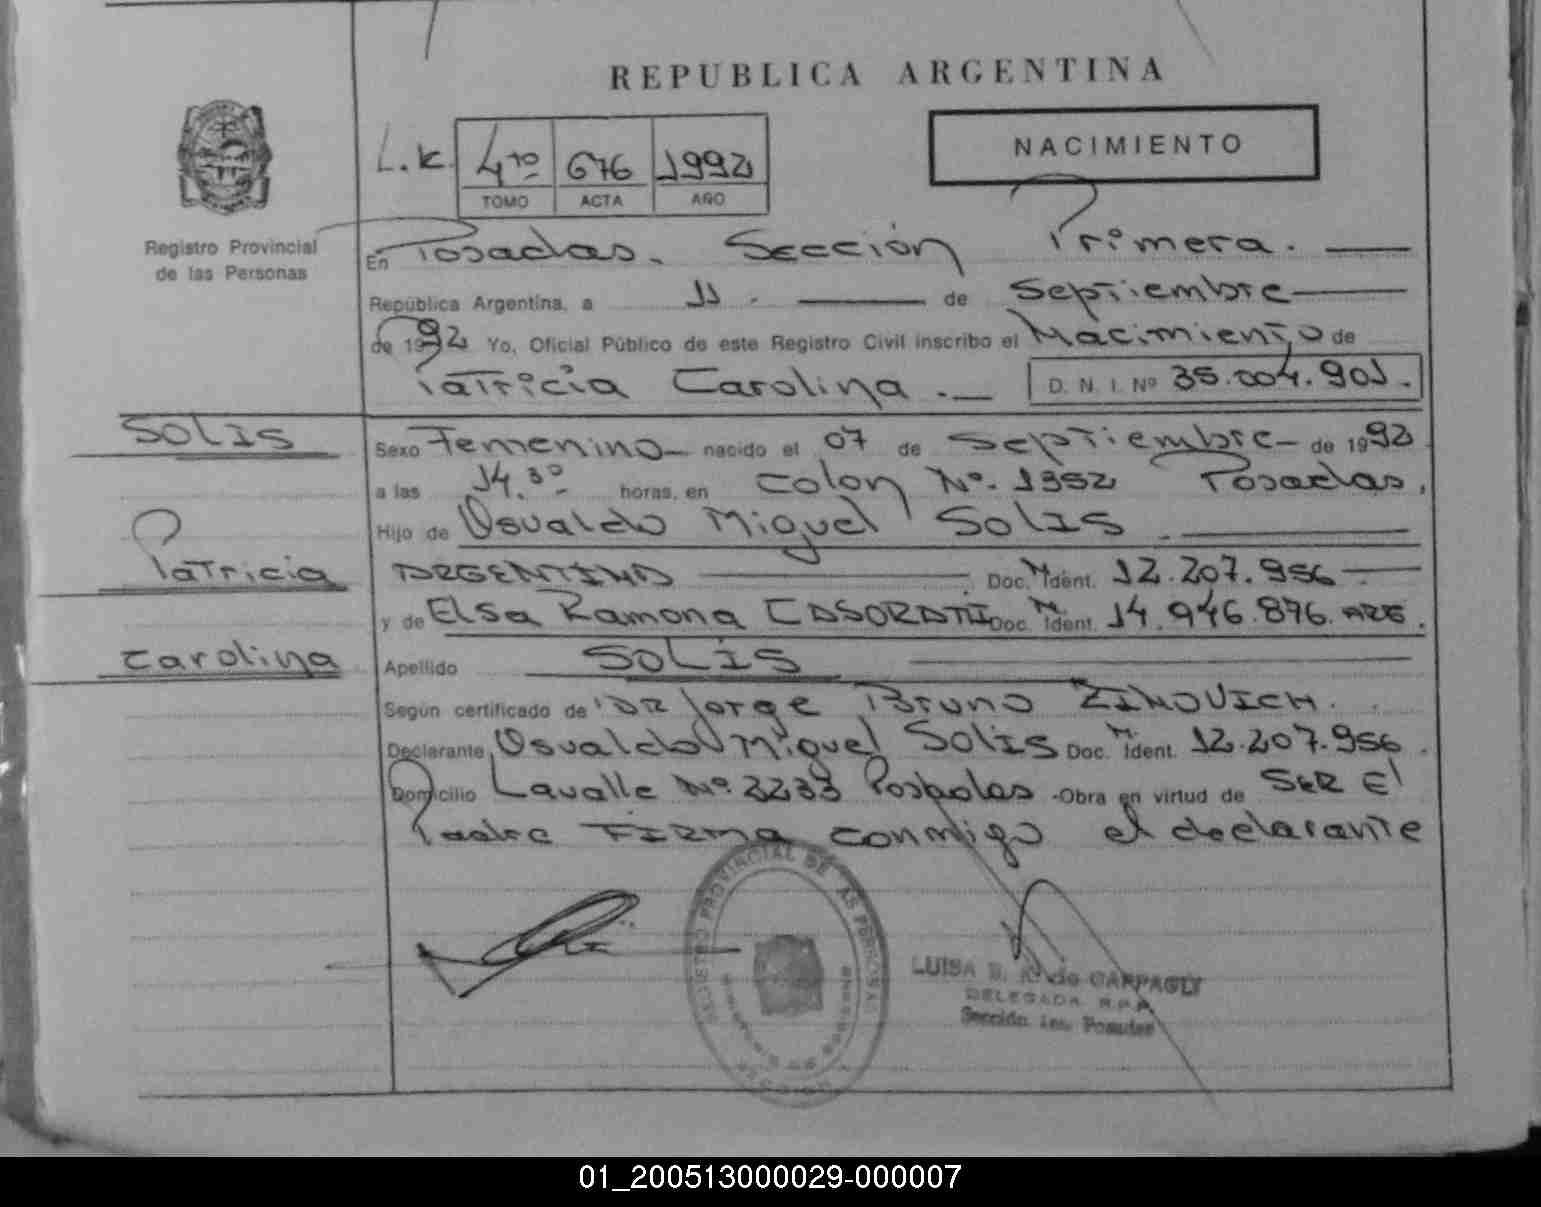 REPUBLICA ARGENTINA
NACIMIENTO
L.K. 4to 676 1992
TOMO ACTA AÑO
Registro Provincial
de las Personas
En Posadas. Sección Primera.
República Argentina, a 11. de Septiembre
de 1992 Yo, Oficial Público de este Registro Civil inscribo el Nacimiento de
Patricia Carolina.
D. N. I. Nº 35.004.901.
SOLIS
Patricia
Carolina
Sexo Femenino nacido el 07 de Septiembre de 1992
a las 14.30 horas, en Colon Nº. 1352 Posadas.
Hijo de Osvaldo Miguel SOLIS.
ARGENTINO Doc. M. Ident. 12.207.956
y de Elsa Ramona CASORATTI Doc. M. Ident. 14.946.876. ARG.
Apellido SOLIS
Según certificado de DR Jorge Bruno ZINOVICH.
Declarante Osvaldo Miguel SOLIS Doc. M. Ident. 12.207.956.
Domicilio Lavalle Nº 2233 Posadas -Obra en virtud de SER El
Padre FIRMA conmigo el declarante
REGISTRO PROVINCIAL DE LAS PERSONAS
LUISA
DELEGADA R.P.P.
Sección 1ra. Posadas
01_200513000029-000007